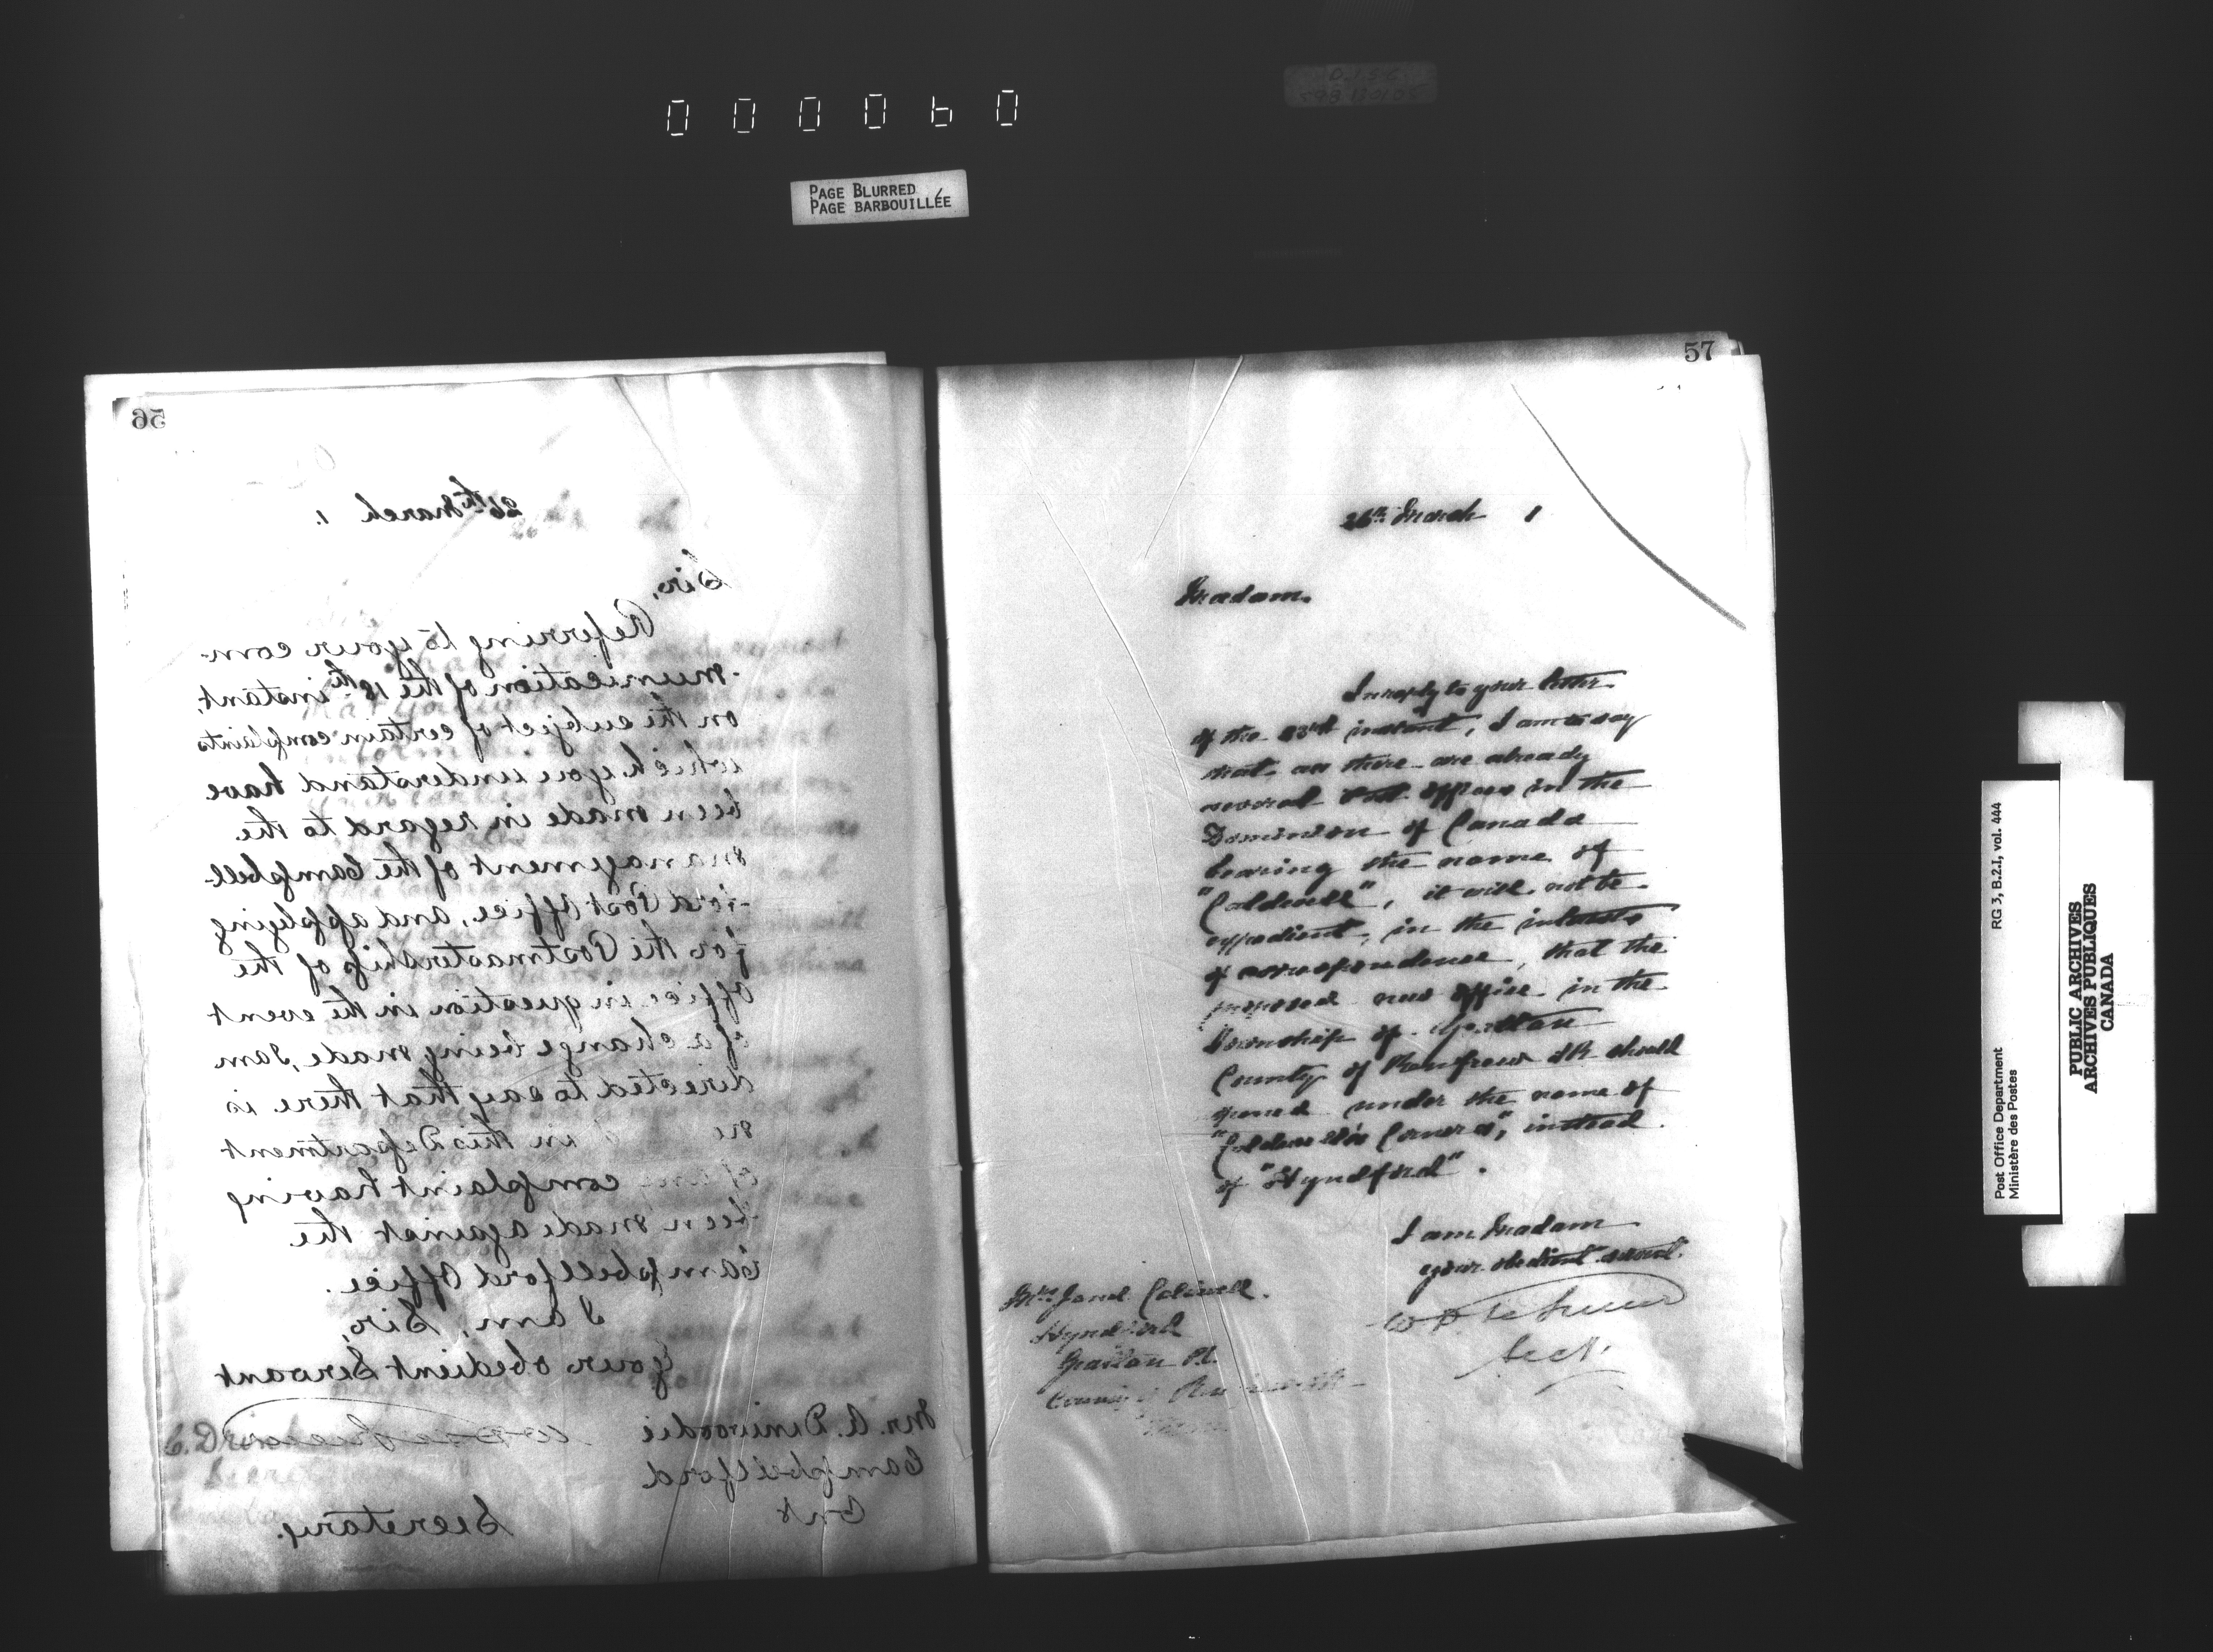 000060
PAGE BLURRED
PAGE BARBOUILLÉE
56
26th March 1.
Sir,
Referring to your com-
-munication of the 18th instant,
on the subject of certain complaints
which you understand have
been made in regard to the
management of the Campbell-
-ford Post Office, and applying
for the Postmastership of the
Office in question in the event
of a change being made, I am
directed to say that there is
no in this Department
of any complaint having
been made against the
Campbellford Office.
I am, Sir,
Your obedient Servant
Mr. A. Dinwoodie
Campbellford
Ont
Secretary.
57
26th March 1
Madam.
In reply to your letter
of the 23rd instant, I am to say
that as there are already
several Post Offices in the
Dominion of Canada
bearing the name of
"Caldwell", it will not be
expedient, in the interests
of correspondence, that the
proposed new office in the
Township of Grattan
County of Renfrew S.R. should
opened under the name of
"Caldwell's Corners", instead
of "Hyndford".
I am Madam
your obedient servant.
Secy.
Mrs. Janet Caldwell.
Hyndford
Grattan P.O.
County of Renfrew S.R.
Post Office Department
Ministère des Postes
RG 3, B.2.I, vol. 444
PUBLIC ARCHIVES
ARCHIVES PUBLIQUES
CANADA